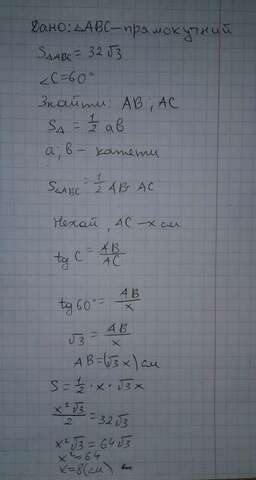 Дано: △ABC - прямокутний
S△ABC = 32√3
∠C = 60°
Знайти: AB, AC
S△ = 1/2 ab
a; b - катети
S△ABC = 1/2 AB · AC
Нехай, AC - x см
tg C = AB/AC
tg 60° = AB/x
√3 = AB/x
AB = (√3x) см
S = 1/2 · x · √3x
x²√3/2 = 32√3
x²√3 = 64√3
x² = 64
x = 8 (см)